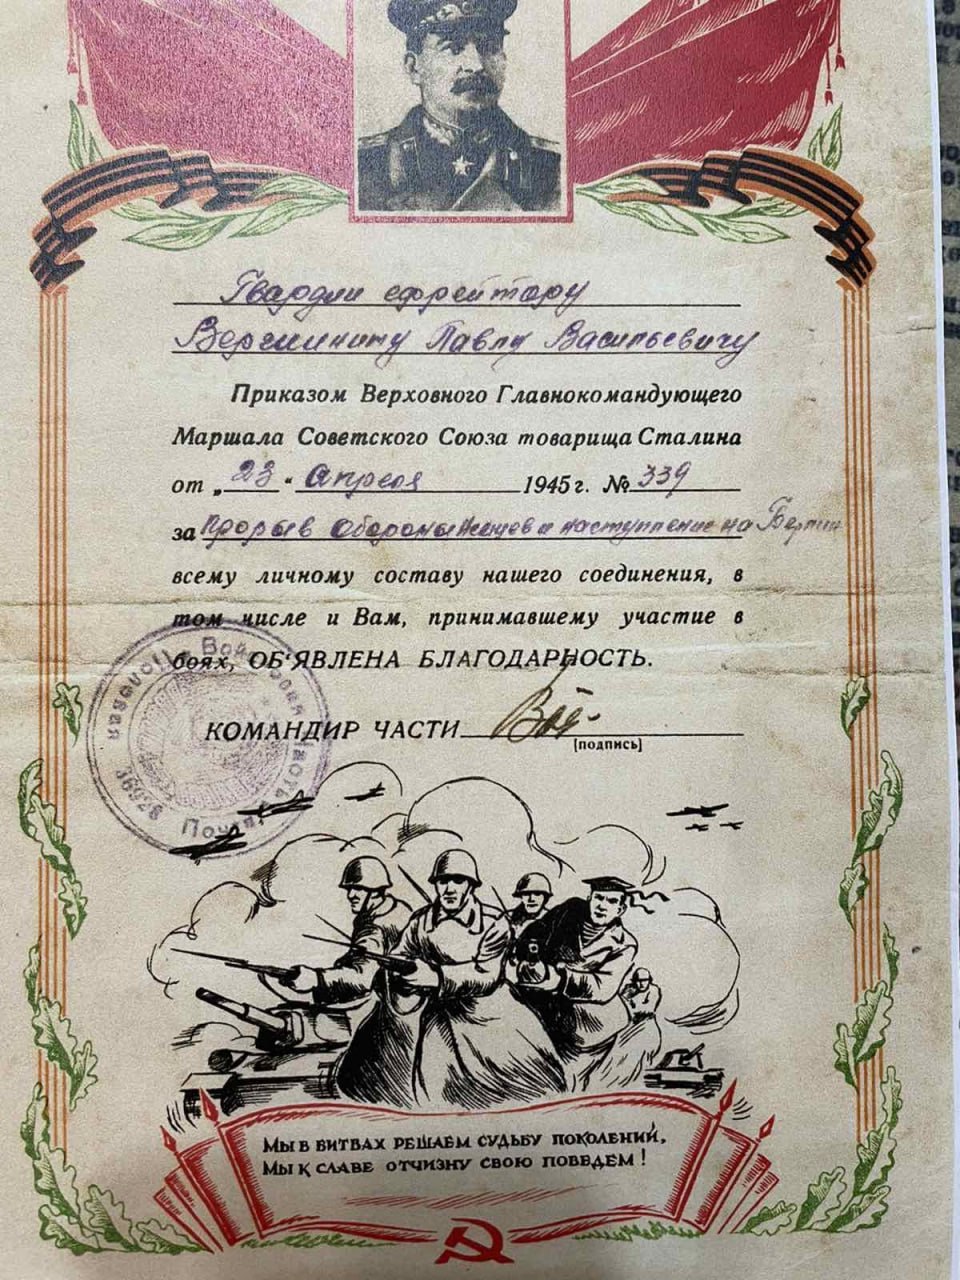 Гвардии ефрейтору
Вережникину Павлу Васильевичу
Приказом Верховного Главнокомандующего
Маршала Советского Союза товарища Сталина
от „23“ Апреля 1945 г. № 339
за прорыв обороны немцев и наступление на Берлин
всему личному составу нашего соединения, в
том числе и Вам, принимавшему участие в
боях, ОБ‘ЯВЛЕНА БЛАГОДАРНОСТЬ.
КОМАНДИР ЧАСТИ
[подпись]
Войсковая Часть Полевая Почта
Мы в битвах решаем судьбу поколений,
Мы к славе отчизну свою поведем!